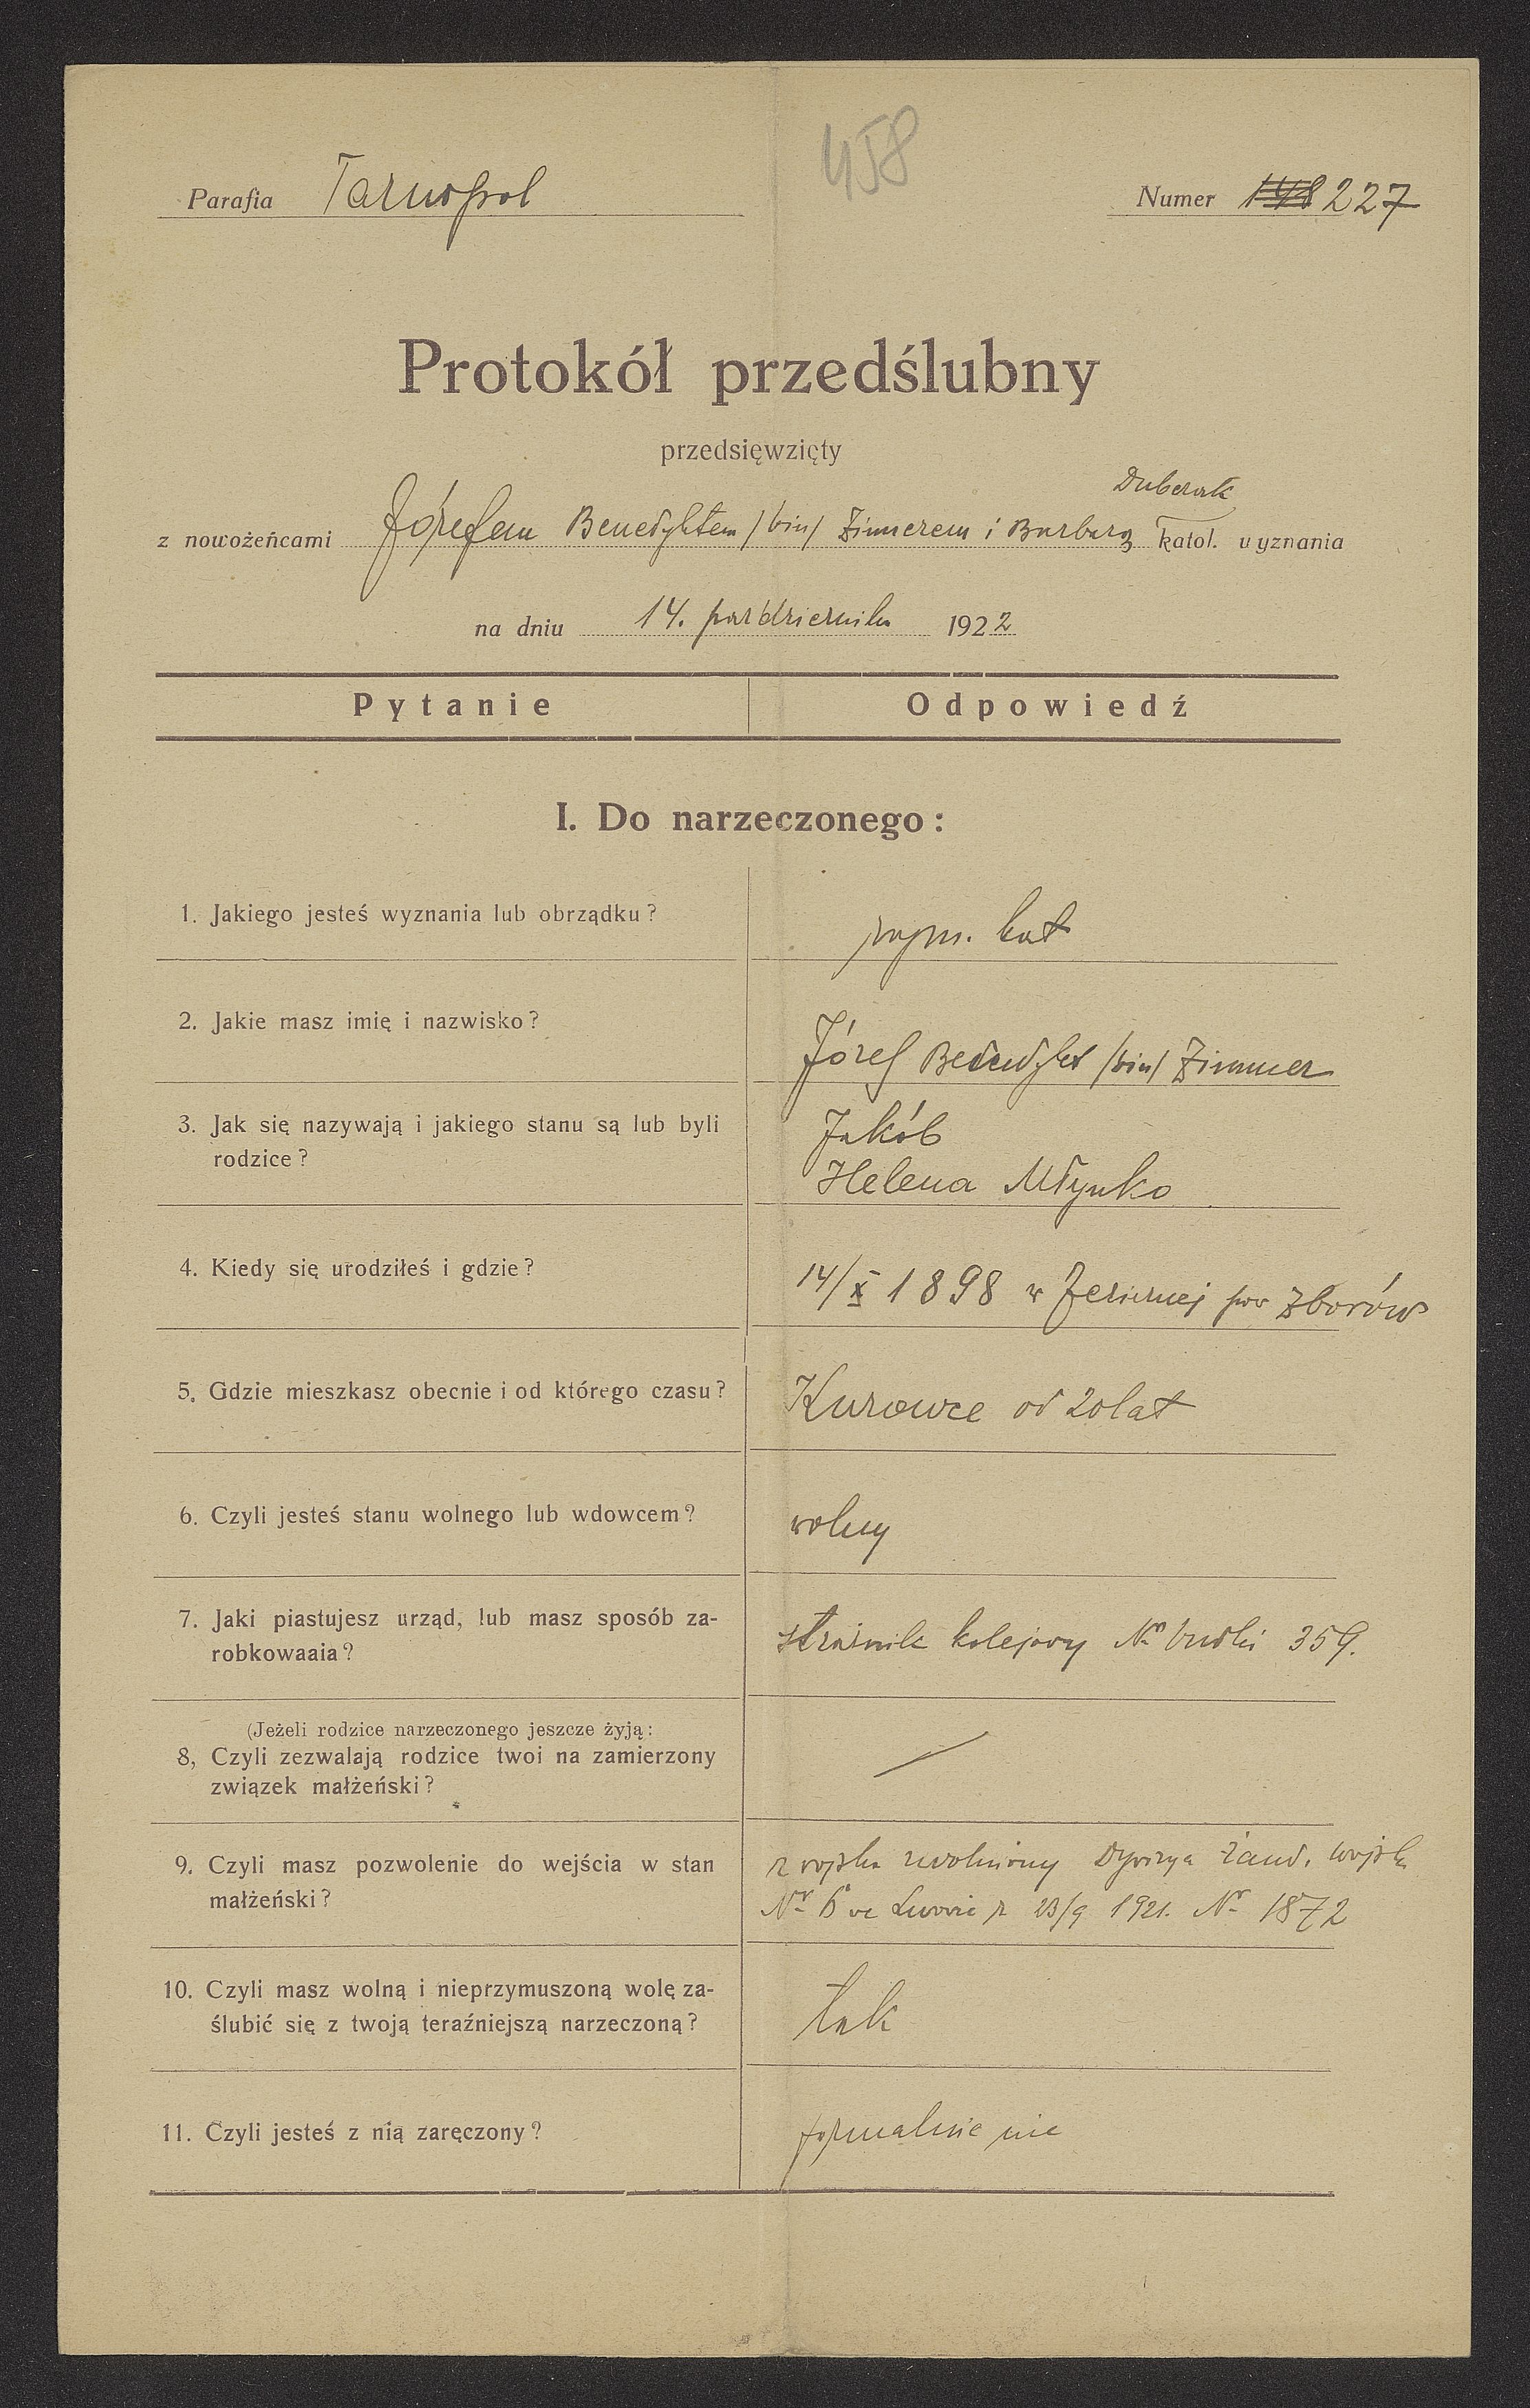 458
Parafia Tarnopol
Numer 148 227
Protokół przedślubny
przedsięwzięty
Duberak
z nowożeńcami Józefem Benedyktem /bin/ Zimmerem i Barbarą katol. wyznania
na dniu 14. października 1922
Pytanie Odpowiedź
I. Do narzeczonego:
1. Jakiego jesteś wyznania lub obrządku? rzym. kat
2. Jakie masz imię i nazwisko? Józef Benedykt /bin/ Zimmer
3. Jak się nazywają i jakiego stanu są lub byli Jakób
rodzice? Helena Młynko
4. Kiedy się urodziłeś i gdzie? 14/X 1898 w Jeziernej pow Zborów
5. Gdzie mieszkasz obecnie i od którego czasu? Kurowce od 20 lat
6. Czyli jesteś stanu wolnego lub wdowcem? wolny
7. Jaki piastujesz urząd, lub masz sposób za-
robkowaaia? strażnik kolejowy Nr budki 359.
(Jeżeli rodzice narzeczonego jeszcze żyją:
8, Czyli zezwalają rodzice twoi na zamierzony
związek małżeński? —
9. Czyli masz pozwolenie do wejścia w stan z wojska zwolniony Dywizya żand. wojsk
małżeński? Nr 6 we Lwowie z 23/9 1921. Nr 1872
10. Czyli masz wolną i nieprzymuszoną wolę za-
ślubić się z twoją teraźniejszą narzeczoną? tak
11. Czyli jesteś z nią zaręczony? formalnie nie